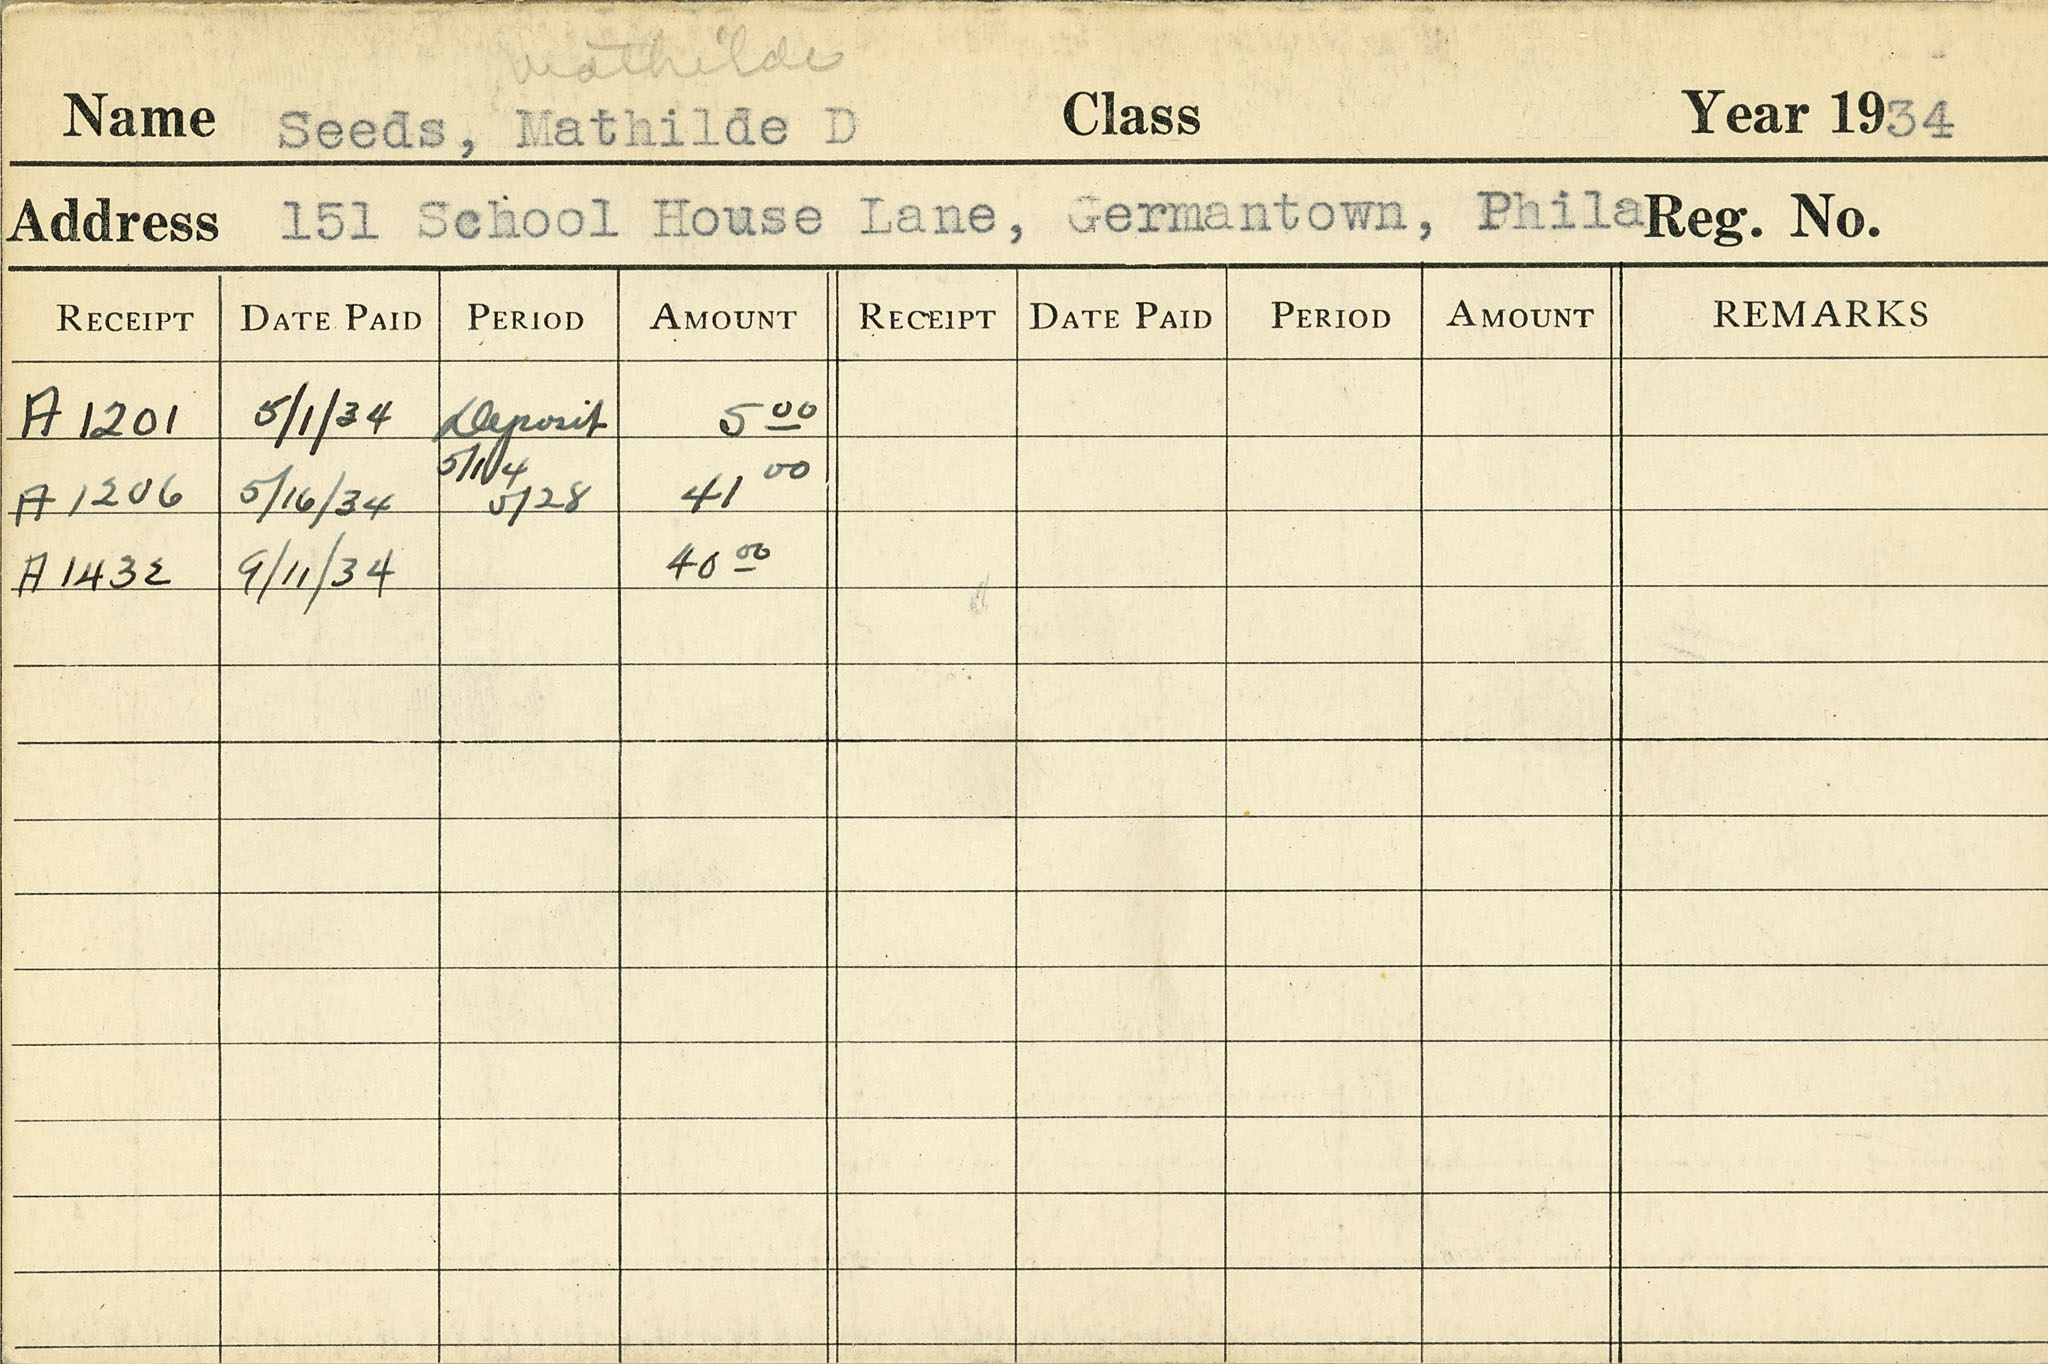 Mathilde
Name Seeds, Mathilde D Class Year 1934
Address 151 School House Lane, Germantown, Phila Reg. No.
RECEIPT DATE PAID PERIOD AMOUNT RECEIPT DATE PAID PERIOD AMOUNT REMARKS
A 1201 5/1/34 Deposit 5 00
5/14
A 1206 5/16/34 5/28 41 00
A 1432 9/11/34 40 00